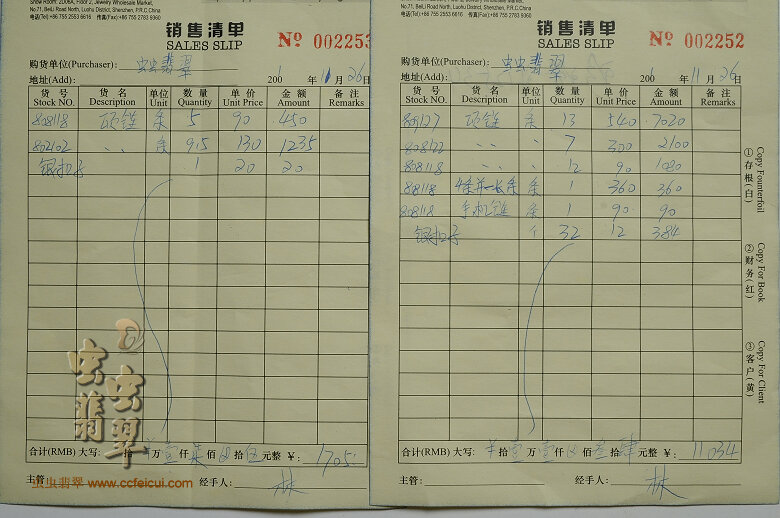 Show Room: 2D08A, Floor 2, Jewelry Wholesale Market,
No.71, BeiLi Road North, Luohu District, Shenzhen, P.R.C,China
电话(Tel):+86 755 2553 6616 传真(Fax):+86 755 2783 9060
销售清单
SALES SLIP
№ 002253
购货单位(Purchaser): 虫虫翡翠
地址(Add): 200 年 11 月 26 日
货号 货名 单位 数量 单价 金额 备注
Stock NO. Description Unit Quantity Unit Price Amount Remarks
808118 项链 条 5 90 450
802102 〃 条 9.5 130 1235
银扣子 1 20 20
合计(RMB) 大写: 拾 万壹仟柒佰 拾伍元整 ¥: 1705.
主管: 经手人: 林
虫虫翡翠
虫虫翡翠 www.ccfeicui.com
No.71, BeiLi Road North, Luohu District, Shenzhen, P.R.C,China
电话(Tel):+86 755 2553 6616 传真(Fax):+86 755 2783 9060
销售清单
SALES SLIP
№ 002252
购货单位(Purchaser): 虫虫翡翠
地址(Add): 200 年 11 月 26 日
货号 货名 单位 数量 单价 金额 备注
Stock NO. Description Unit Quantity Unit Price Amount Remarks
809127 项链 条 13 540 7020
808122 〃 〃 7 300 2100
808118 〃 〃 12 90 1080
808118 4条并一长条 条 1 360 360
808118 手机链 条 1 90 90
银扣子 个 32 12 384
合计(RMB) 大写: 拾壹万壹仟 佰叁拾肆元整 ¥: 11034
主管: 经手人: 林
①存根(白) Copy Founterfoil
②财务(红) Copy For Book
③客户(黄) Copy For Client